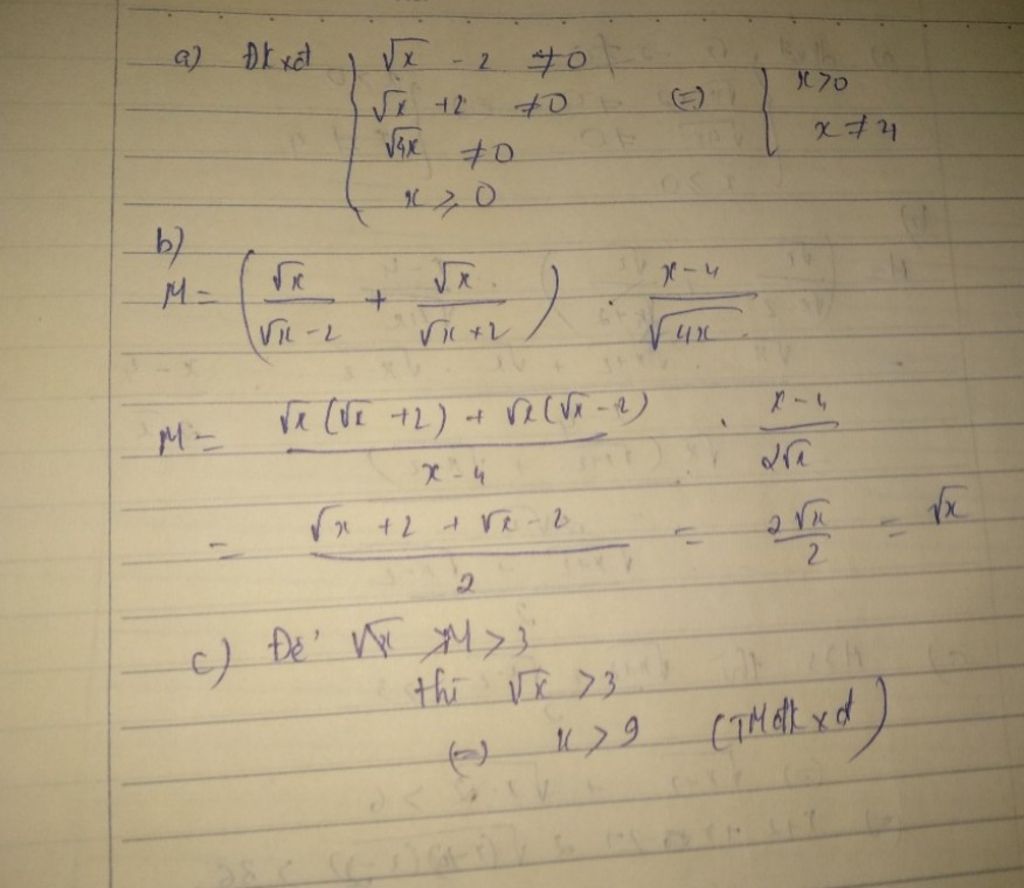 a) Đkxđ { √x - 2 ≠ 0
√x + 2 ≠ 0 (=) { x > 0
√4x ≠ 0 x ≠ 4
x ≥ 0
b)
M = ( √x / (√x - 2) + √x / (√x + 2) ) . (x - 4) / √4x
M = (√x (√x + 2) + √x (√x - 2)) / (x - 4) . (x - 4) / 2√x
= (√x + 2 + √x - 2) / 2 = 2√x / 2 = √x
c) Để M > 3
thì √x > 3
(=) x > 9 (TMđkxđ)